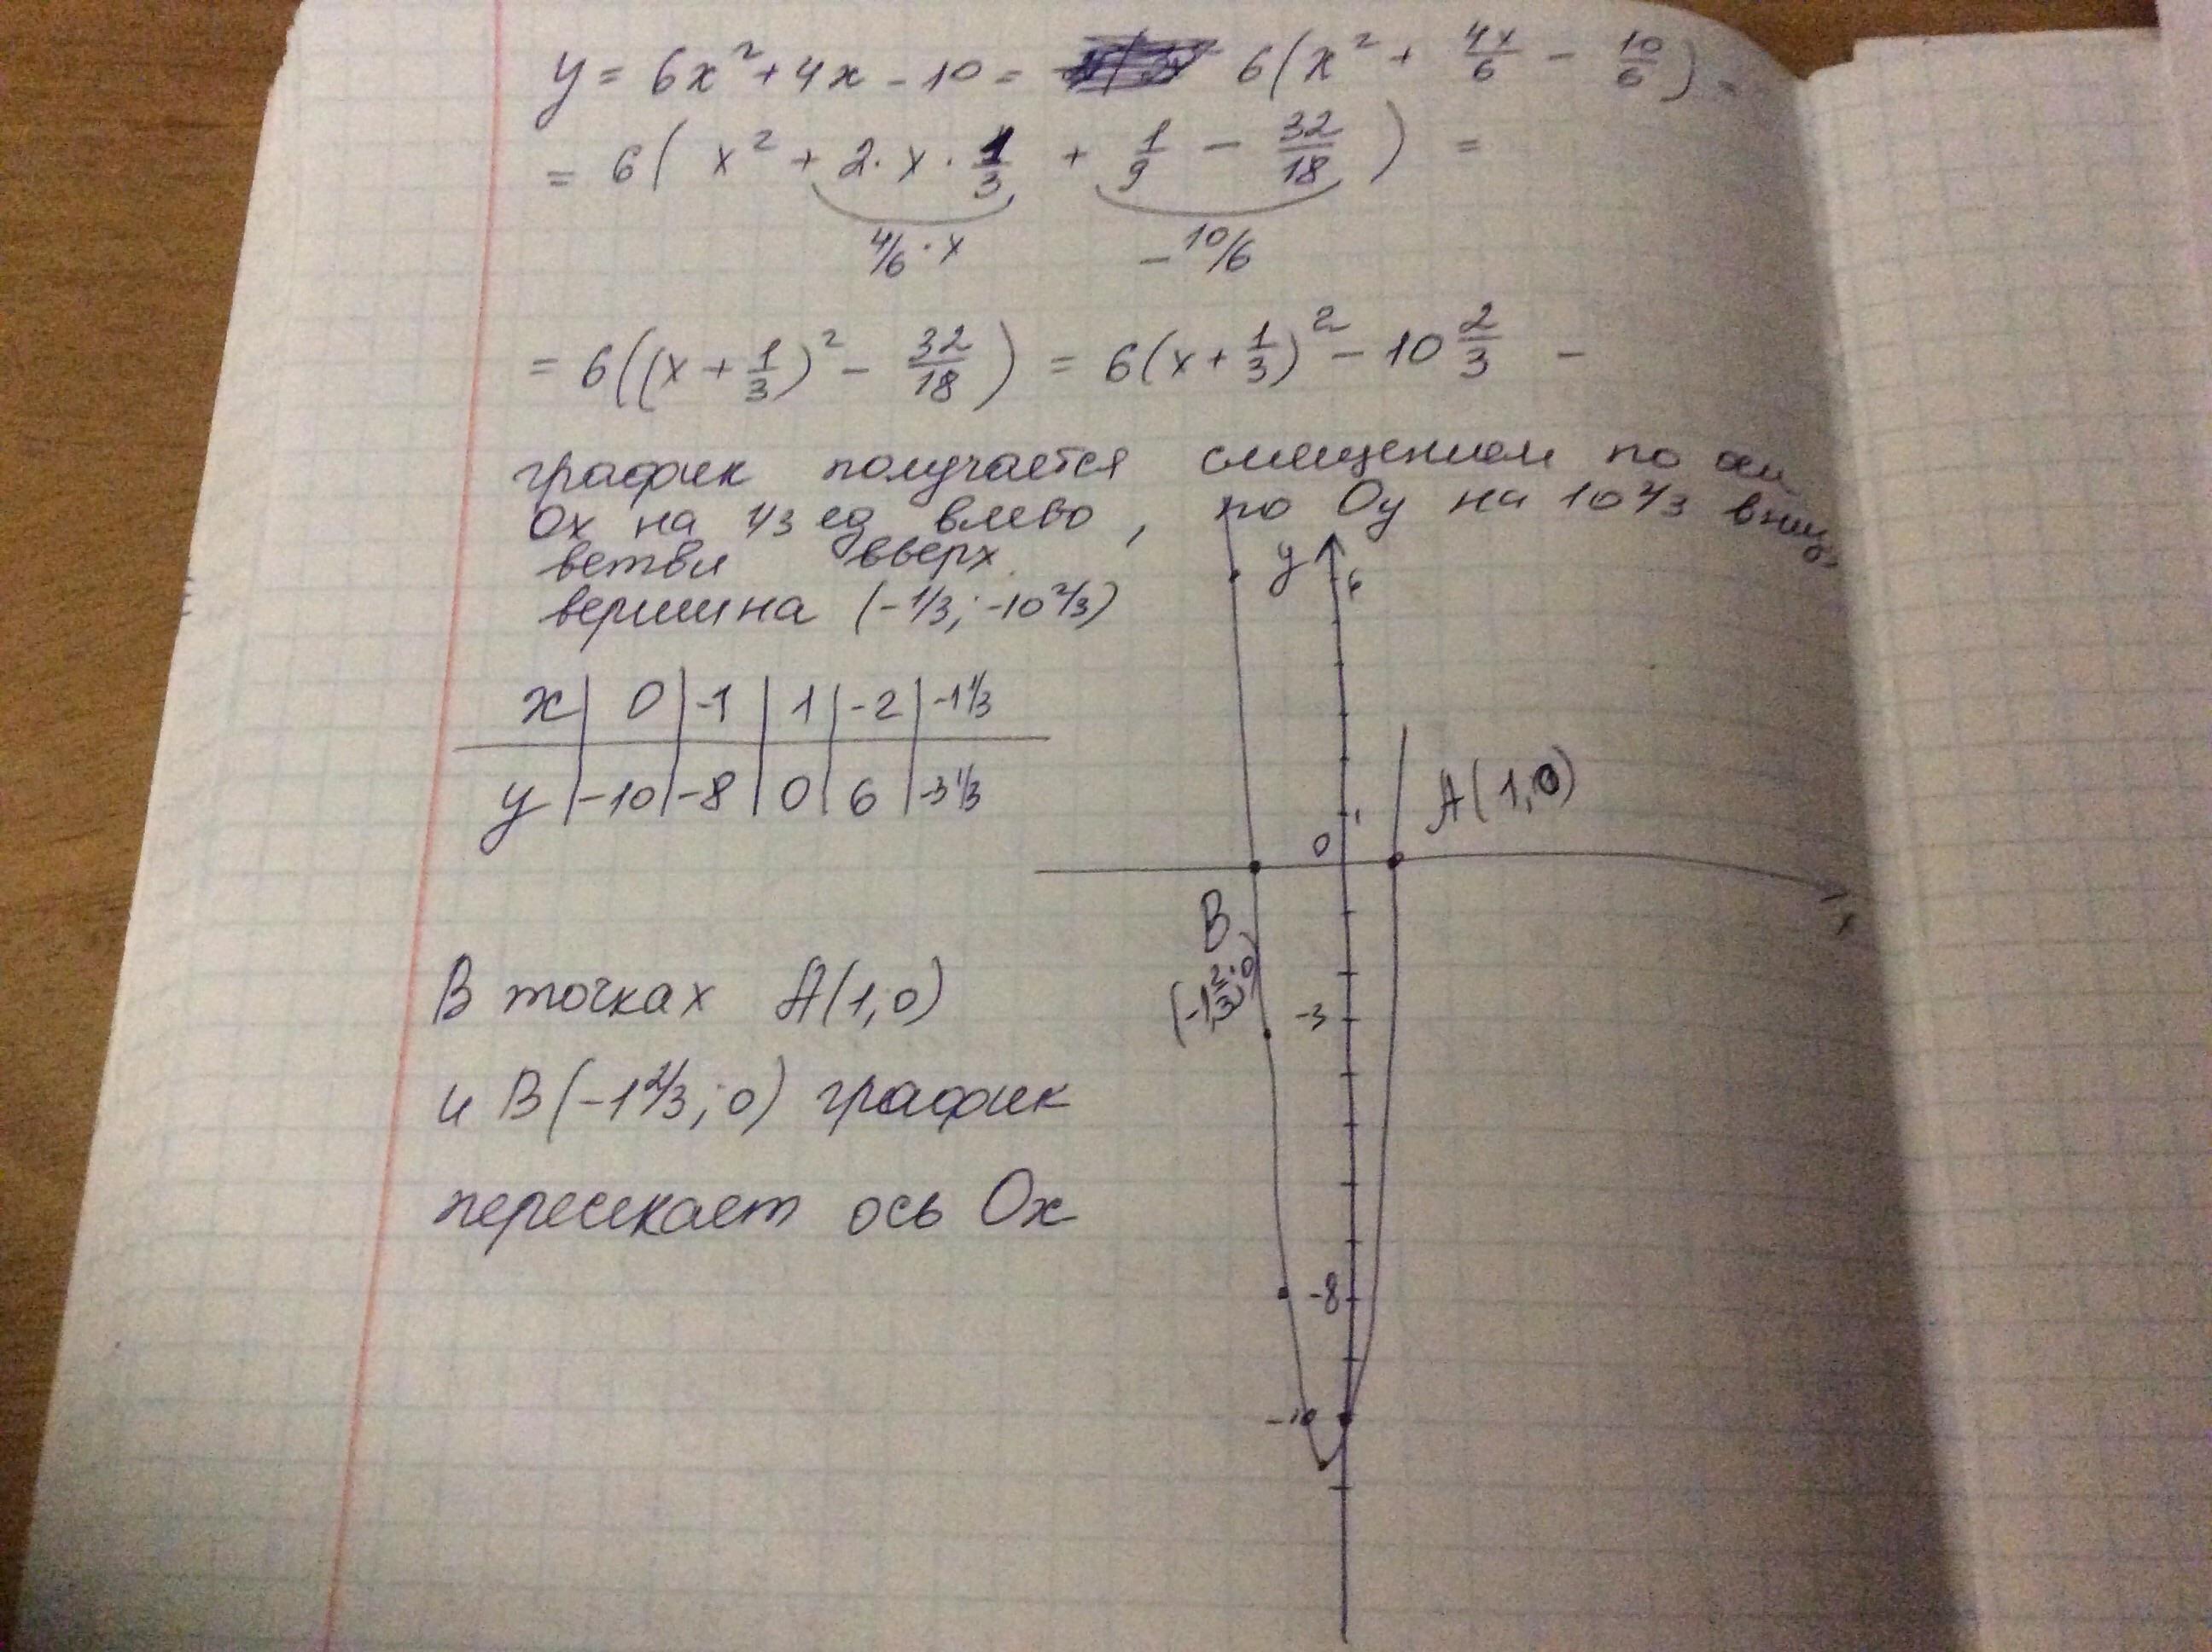 y = 6x² + 4x - 10 = 6(x² + 4x/6 - 10/6) =
= 6( x² + 2·x·1/3 + 1/9 - 32/18 ) =
4/6·x
-10/6
= 6((x + 1/3)² - 32/18) = 6(x + 1/3)² - 10 2/3 -
график получается смещением по оси
Ox на 1/3 ед влево, по Oy на 10 2/3 вниз,
ветви вверх
вершина (-1/3; -10 2/3)
x | 0 | -1 | 1 | -2 | -1 1/3
y | -10 | -8 | 0 | 6 | -3 1/3
В точках A(1,0)
и B(-1 2/3; 0) график
пересекает ось Ox
y
6
1
0
A(1,0)
x
B
(-1 2/3; 0)
-3
-8
-10